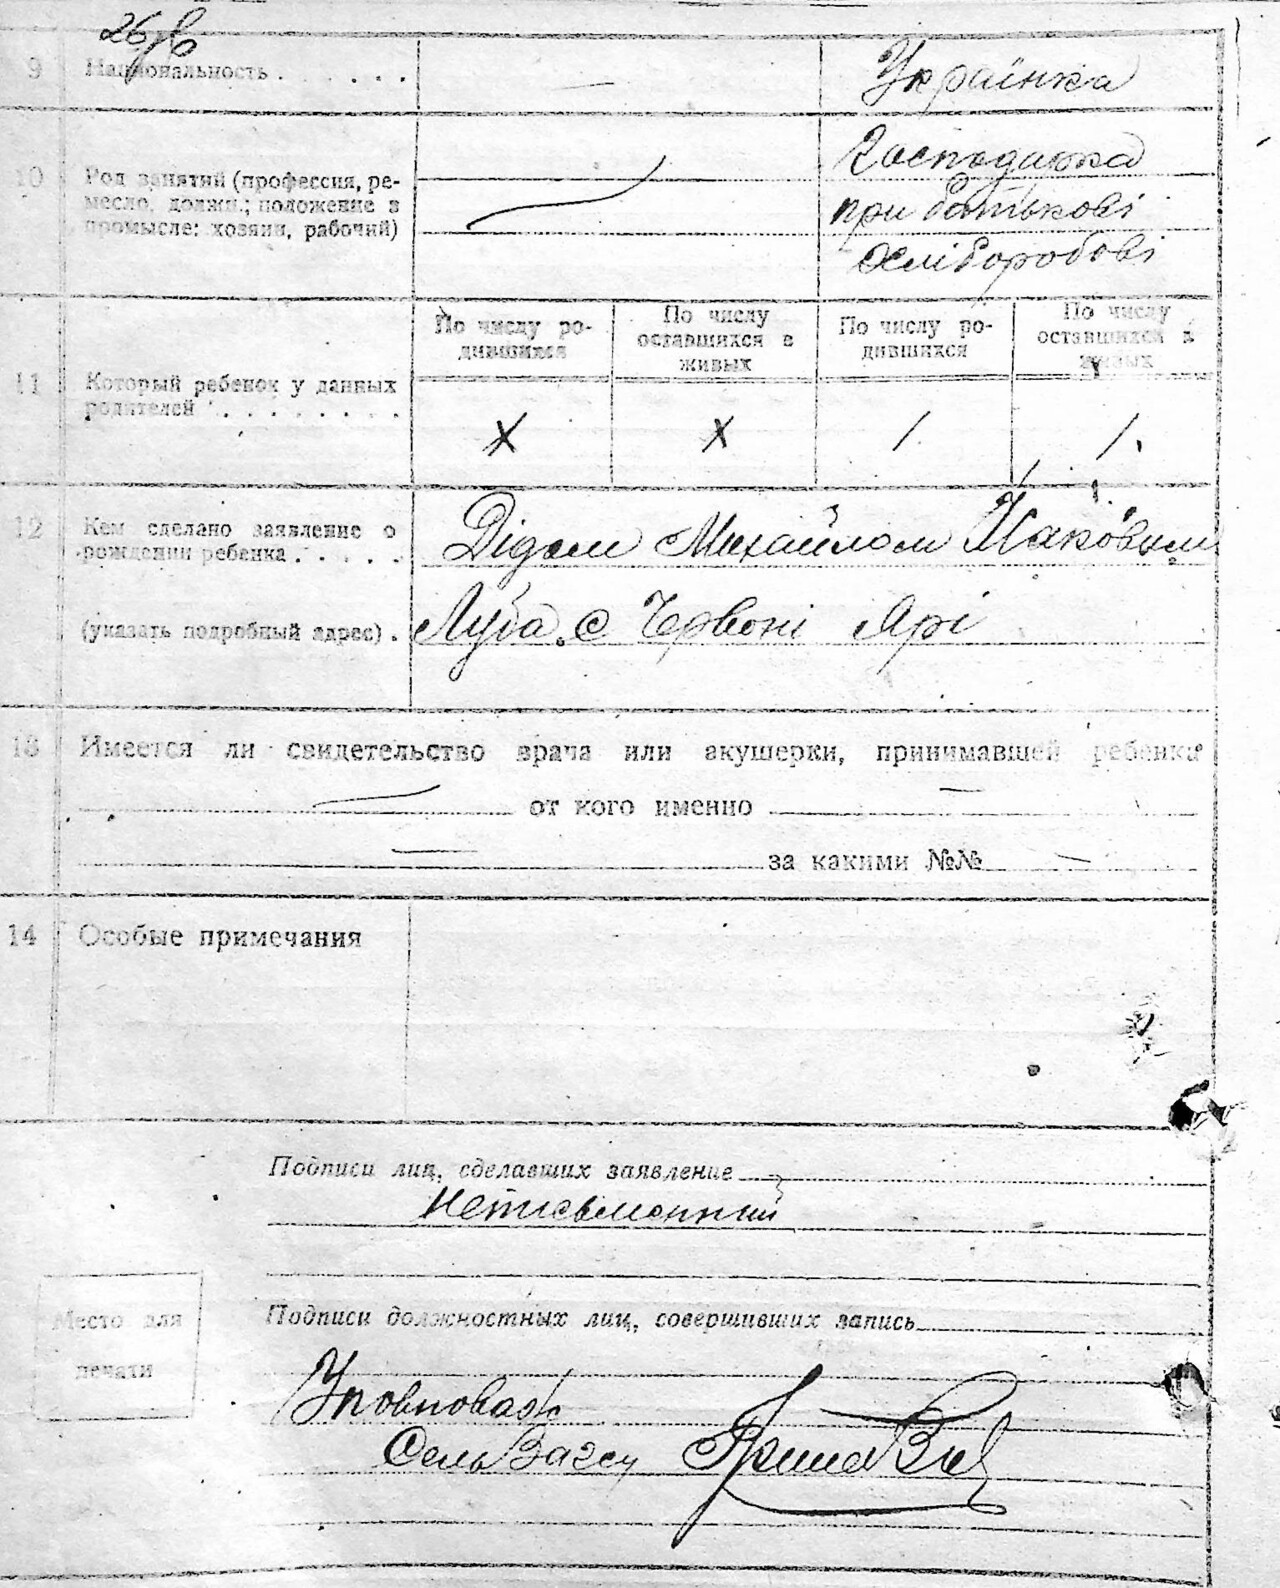 26/в
9 Национальность . . . . . . — Українка
10 Род занятий (профессия, ре-
месло, должн.; положение в
промысле: хозяин, рабочий)
Господарка
при батькові
хліборобові
По числу ро-
дившихся
По числу
оставшихся в
живых
По числу ро-
дившихся
По числу
оставшихся в
живых
11 Который ребенок у данных
родителей . . . . . . . .
X X 1 1.
12 Кем сделано заявление о
рождении ребенка . . . . .
Дідом Михайлом Яковым
(указать подробный адрес) . Луба. с Червоні Ярі
13 Имеется ли свидетельство врача или акушерки, принимавшей ребенка
— от кого именно —
— за какими №№ —
14 Особые примечания
Подписи лиц, сделавших заявление
Неписьменний
Место для
печати
Подписи должностных лиц, совершивших запись
Уповноваж
Сель